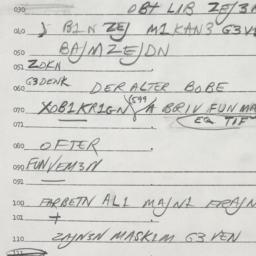 030 OBT LIB ZEJ3
040 J BIN ZEJ MIKAN3 G3V
050 BAJMZEJDN
051 ZOKN
060 G3DENK DERALTER BOBE
070 XOB1KR1GN A BRIV FUN MA
071 EQ TIF
080 OFTER
090 FUN/EM3N
091
100 FARBETN AL1 MAJN1 FRAJN
101 +
110 ZAJNSN MASKIM G3VEN